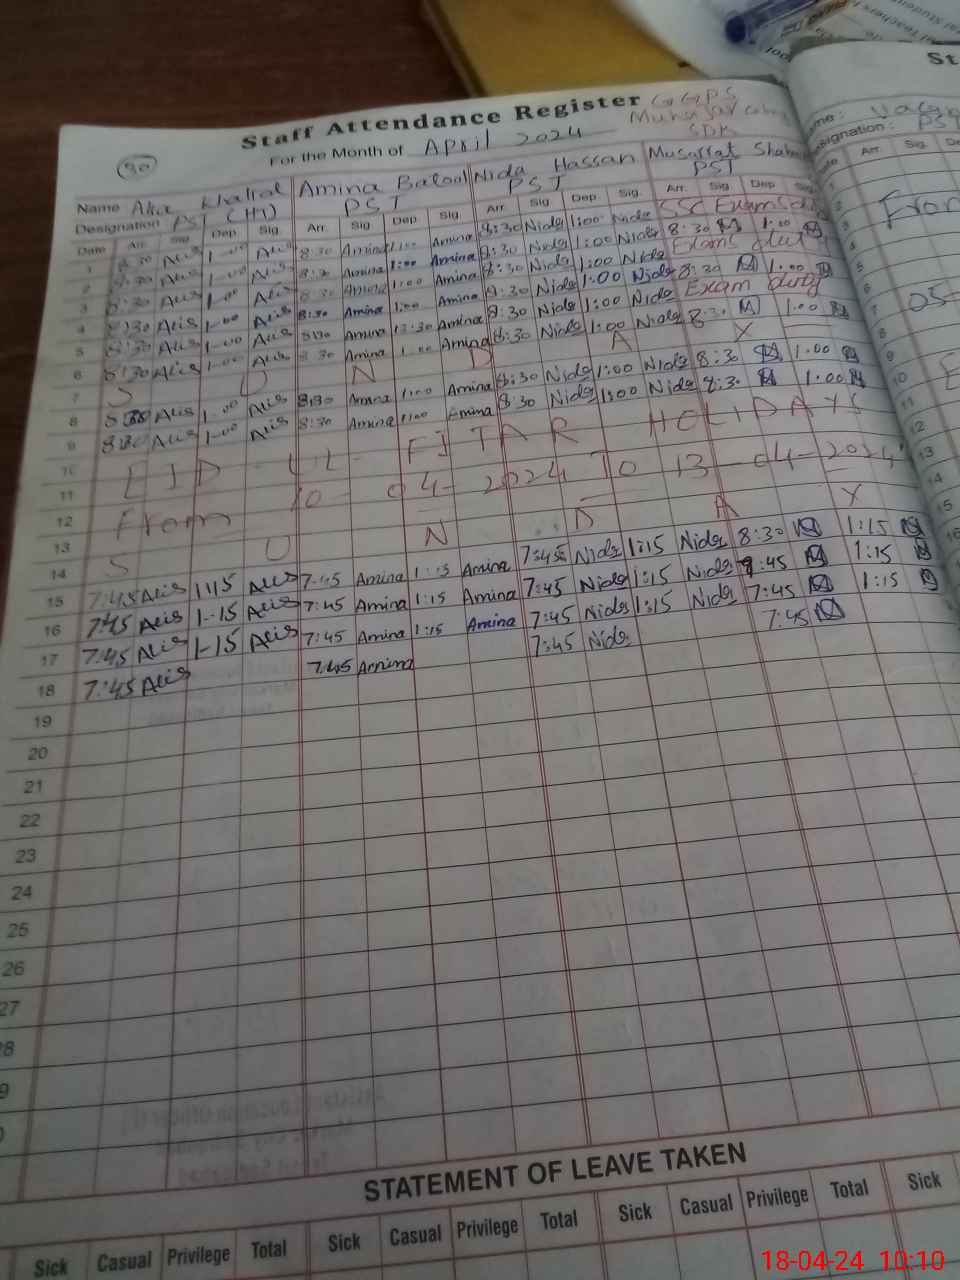 Staff Attendance Register GGPS
For the Month of April 2024 Muhajar
SDK
50
Name Khalid Amina Batool Nida Hassan Musarrat
Designation PST (H1) PST PST PST
Date Arr. Sig. Dep Sig. Arr. Sig Dep Sig. Arr. Sig Dep Sig. Arr. Sig Dep Sig
1 8:30 Alis 1-00 Alis 8:30 Amina 1:00 Amina 8:30 Nida 1:00 Nida SSC Exams
2 8:30 Alis 1-00 Alis 8:30 Amina 1:00 Amina 8:30 Nida 1:00 Nida 8:30 1.00
3 8:30 Alis 1-00 Alis 8:30 Amina 1:00 Amina 8:30 Nida 1:00 Nida Exams duty
4 8:30 Alis 1-00 Alis 8:30 Amina 1:00 Amina 8:30 Nida 1:00 Nida 8:30 1.00
5 8:30 Alis 1-00 Alis 8:30 Amina 12:30 Amina 8:30 Nida 1:00 Nida Exam duty
6 8:30 Alis 1-00 Alis 8:30 Amina 1:00 Amina 8:30 Nida 1:00 Nida 8:30 1.00
7 S U N D A Y
8 8:30 Alis 1-00 Alis 8:30 Amina 1:00 Amina 8:30 Nida 1:00 Nida 8:30 1.00
9 8:30 Alis 1-00 Alis 8:30 Amina 1:00 Amina 8:30 Nida 1:00 Nida 8:30 1.00
10 EID UL FITAR HOLIDAYS
11
12 From 10-04-2024 To 13-04-2024
13
14 S U N D A Y
15 7:45 Alis 1:15 Alis 7:45 Amina 1:15 Amina 7:45 Nida 1:15 Nida 8:30 1:15
16 7:45 Alis 1-15 Alis 7:45 Amina 1:15 Amina 7:45 Nida 1:15 Nida 7:45 1:15
17 7:45 Alis 1-15 Alis 7:45 Amina 1:15 Amina 7:45 Nida 1:15 Nida 7:45 1:15
18 7:45 Alis 7:45 Amina 7:45 Nida 7:45
19
20
21
22
23
24
25
26
27
28
9
STATEMENT OF LEAVE TAKEN
Sick Casual Privilege Total Sick Casual Privilege Total Sick Casual Privilege Total Sick
St
me:
signation: PST
Arr. Sig.
From
05-
3
4
5
6
7
8
9
10
11
12
13
14
15
16
18-04-24 10:10